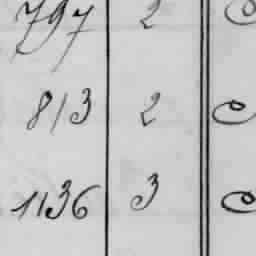 797 2
813 2
1136 3